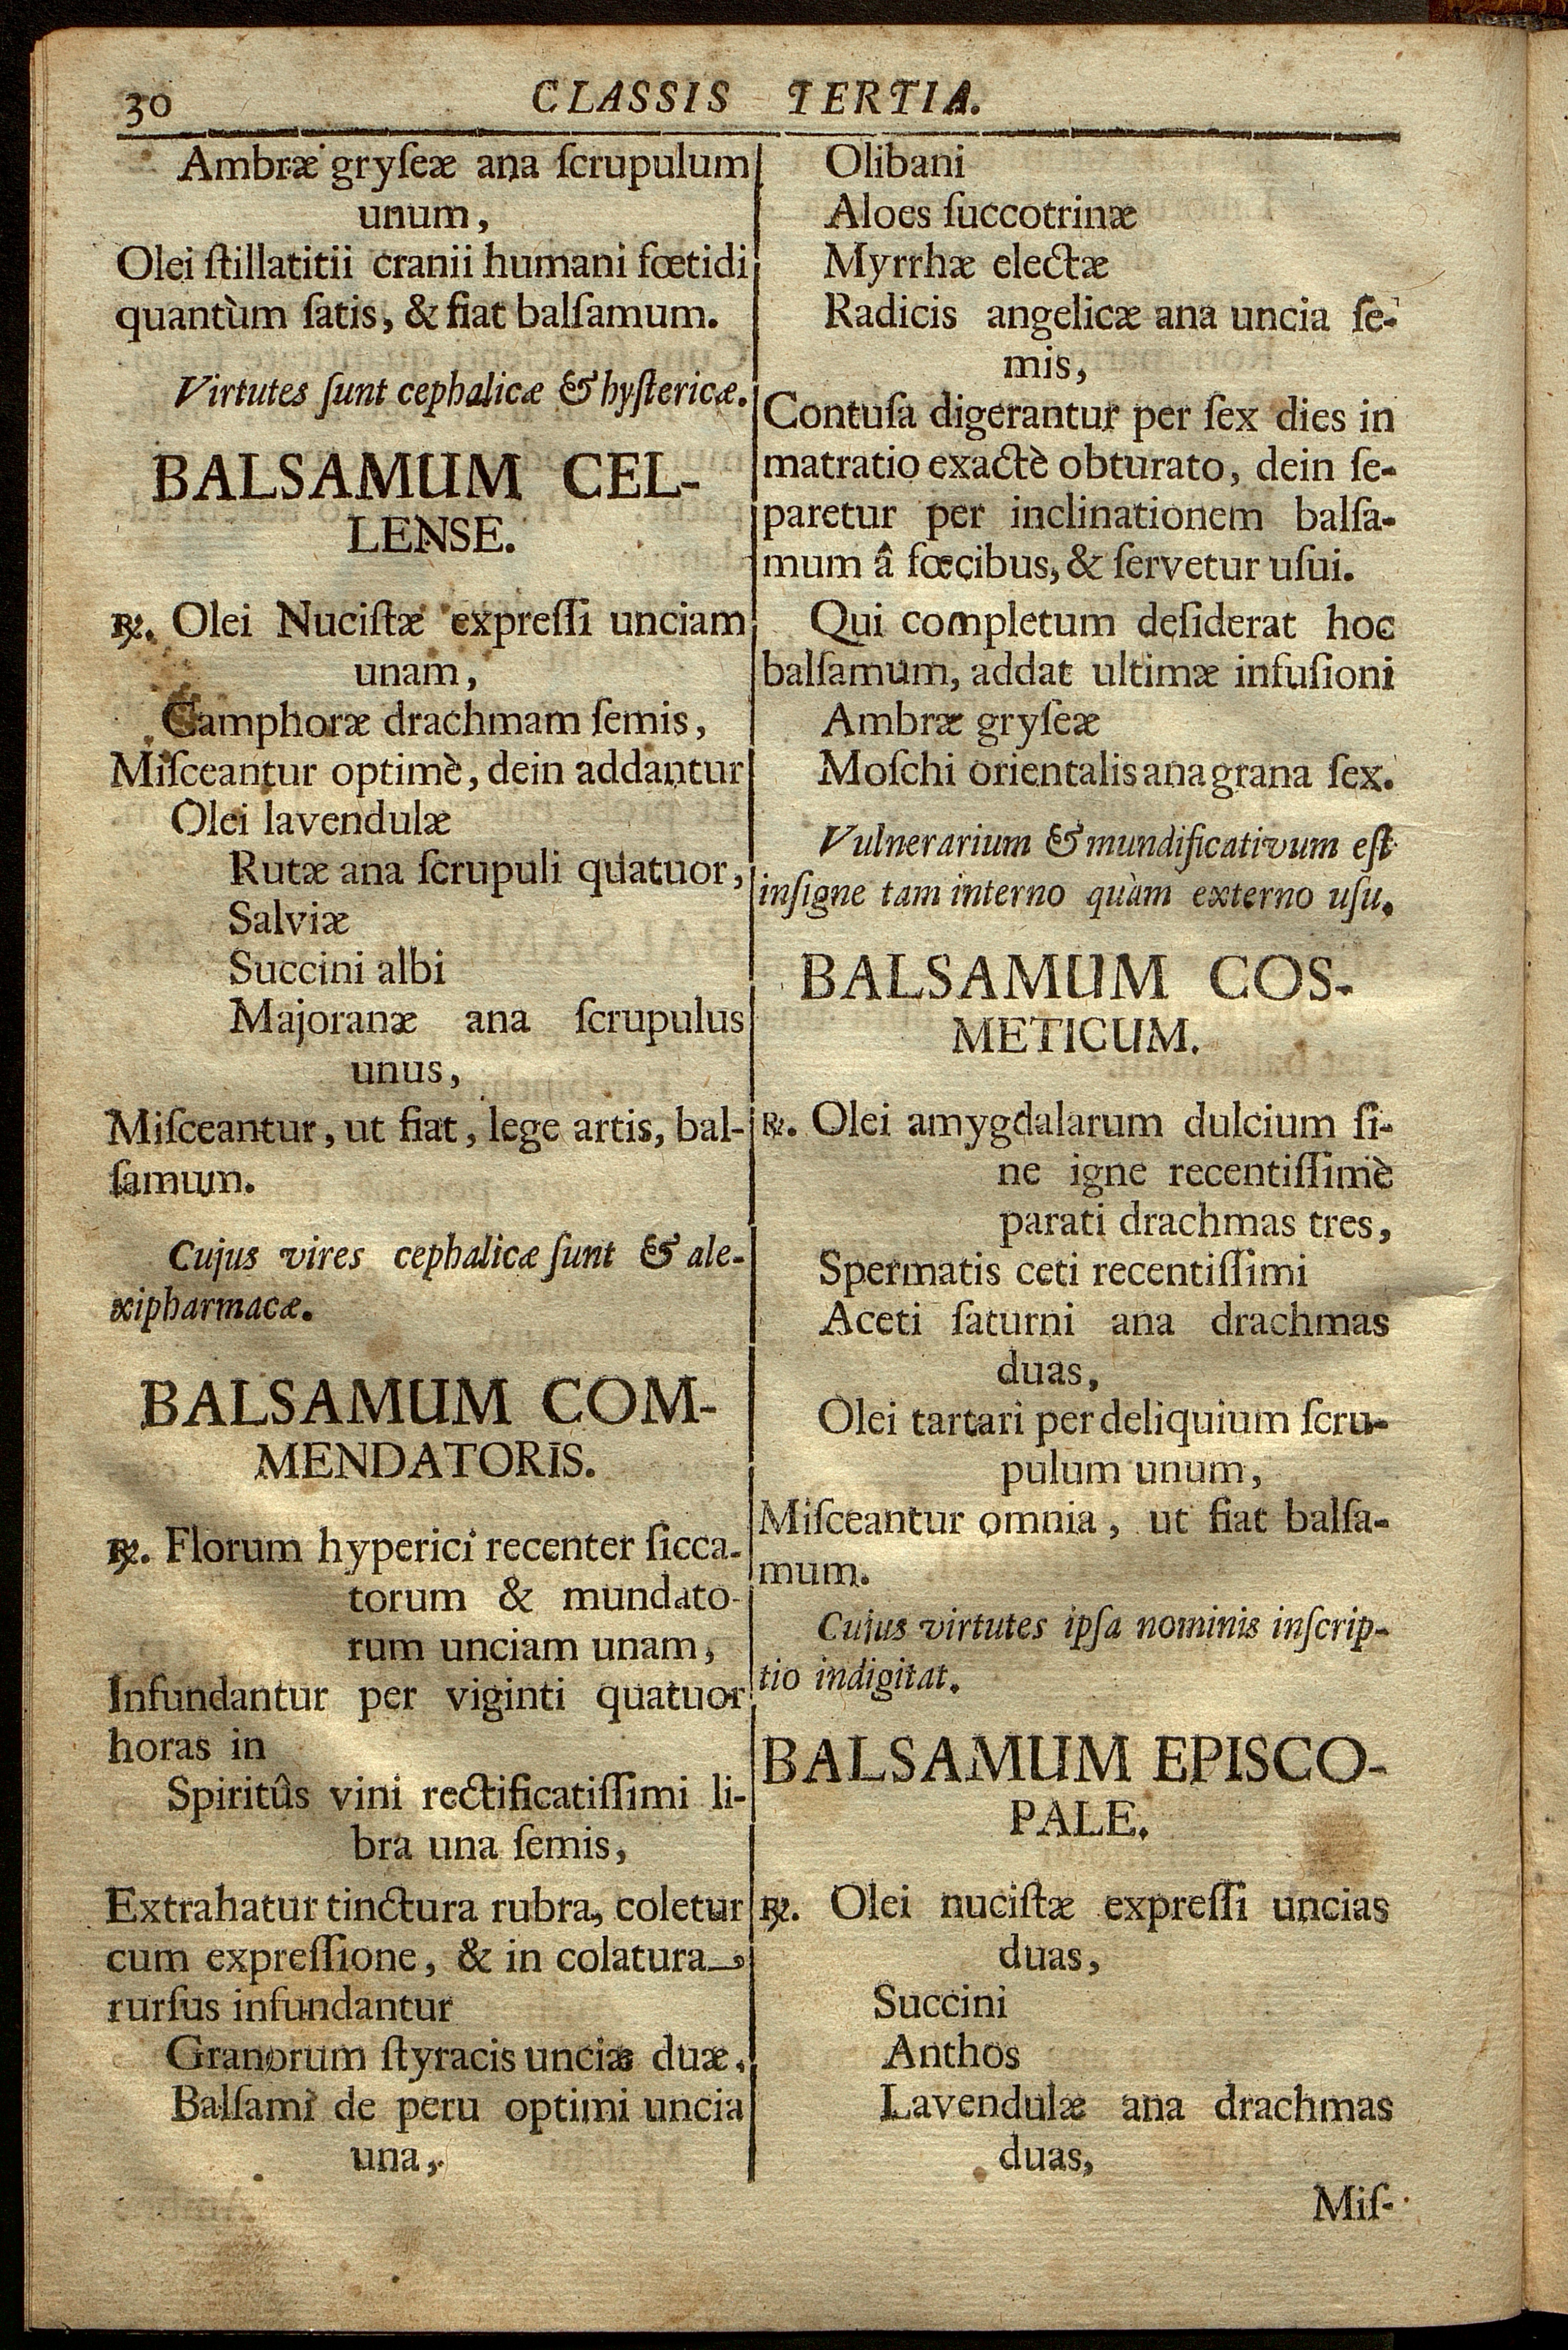 30 CLASSIS TERTIA.
Ambræ gryſeæ ana ſcrupulum
unum,
Olei ſtillatitii cranii humani fœtidi
quantùm ſatis, & fiat balſamum.
Virtutes ſunt cephalicæ & hyſtericæ.
BALSAMUM CEL-
LENSE.
℞. Olei Nuciſtæ expreſſi unciam
unam,
Camphoræ drachmam ſemis,
Miſceantur optimè, dein addantur
Olei lavendulæ
Rutæ ana ſcrupuli quatuor,
Salviæ
Succini albi
Majoranæ ana ſcrupulus
unus,
Miſceantur, ut fiat, lege artis, bal-
ſamum.
Cujus vires cephalicæ ſunt & ale-
xipharmacæ.
BALSAMUM COM-
MENDATORIS.
℞. Florum hyperici recenter ſicca-
torum & mundato-
rum unciam unam,
Infundantur per viginti quatuor
horas in
Spiritûs vini rectificatiſſimi li-
bra una ſemis,
Extrahatur tinctura rubra, coletur
cum expreſſione, & in colatura
rurſus infundantur
Granorum ſtyracis unciæ duæ,
Balſami de peru optimi uncia
una,
Olibani
Aloes ſuccotrinæ
Myrrhæ electæ
Radicis angelicæ ana uncia ſe-
mis,
Contuſa digerantur per ſex dies in
matratio exactè obturato, dein ſe-
paretur per inclinationem balſa-
mum â fœcibus, & ſervetur uſui.
Qui completum deſiderat hoc
balſamum, addat ultimæ infuſioni
Ambræ gryſeæ
Moſchi orientalis ana grana ſex.
Vulnerarium & mundificativum eſt
inſigne tam interno quàm externo uſu.
BALSAMUM COS-
METICUM.
℞. Olei amygdalarum dulcium ſi-
ne igne recentiſſimè
parati drachmas tres,
Spermatis ceti recentiſſimi
Aceti ſaturni ana drachmas
duas,
Olei tartari per deliquium ſcru-
pulum unum,
Miſceantur omnia, ut fiat balſa-
mum.
Cujus virtutes ipſa nominis inſcrip-
tio indigitat.
BALSAMUM EPISCO-
PALE.
℞. Olei nuciſtæ expreſſi uncias
duas,
Succini
Anthos
Lavendulæ ana drachmas
duas,
Miſ-